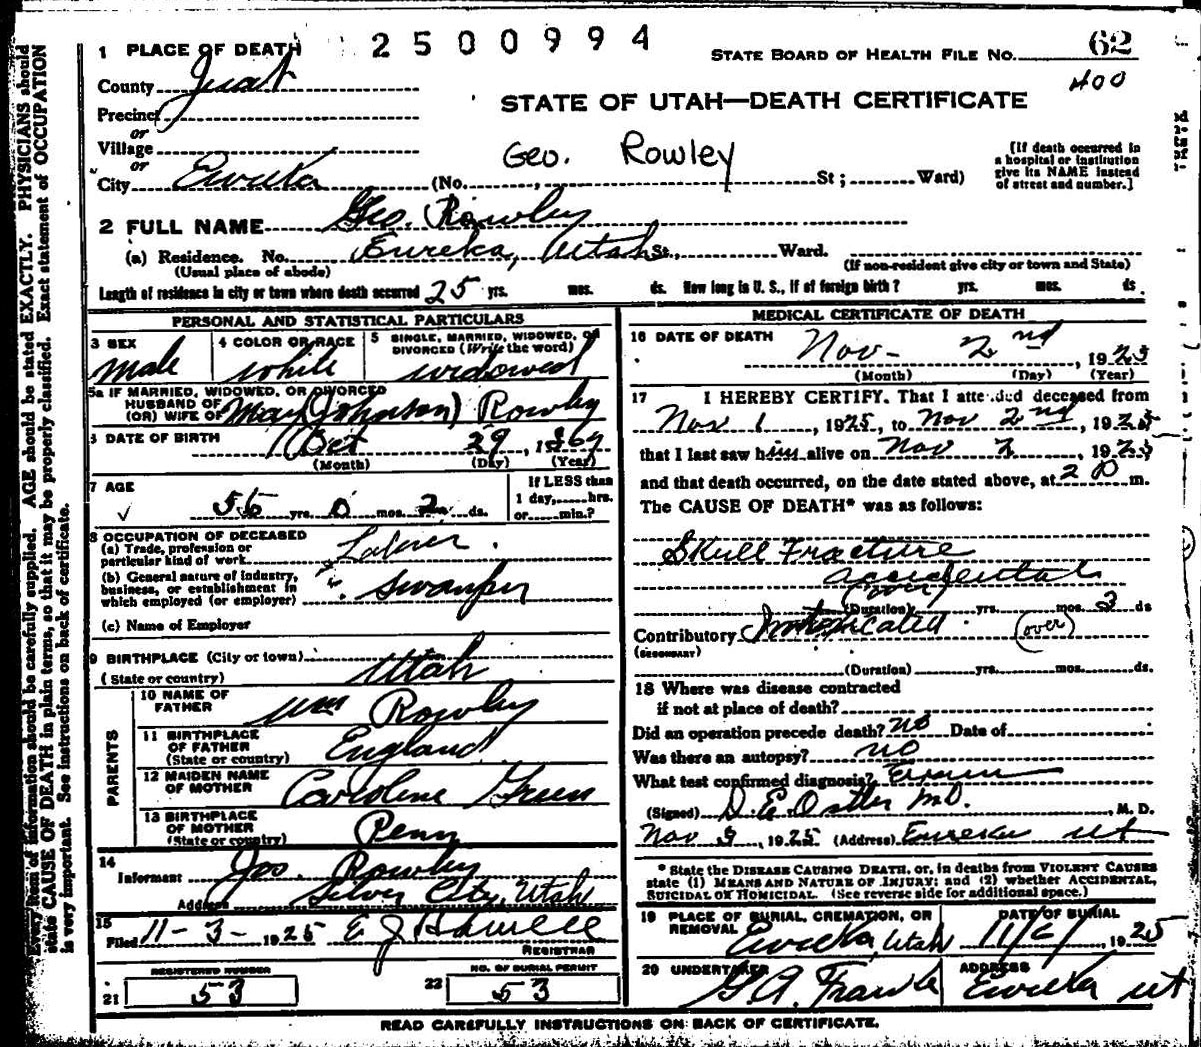 1 PLACE OF DEATH 2500994 STATE BOARD OF HEALTH FILE NO. 62
County Juab 400
STATE OF UTAH—DEATH CERTIFICATE
Precinct
or
Village
or
Geo. Rowley
[If death occurred in
a hospital or institution
give its NAME instead
of street and number.]
City Eureka (No. , St; Ward)
2 FULL NAME Geo. Rowley
(a) Residence. No. Eureka, Utah St., Ward.
(Usual place of abode) (If non-resident give city or town and State)
Length of residence in city or town where death occurred 25 yrs. mos. ds. How long in U. S., if of foreign birth? yrs. mos. ds.
PERSONAL AND STATISTICAL PARTICULARS
3 SEX male
4 COLOR OR RACE white
5 SINGLE, MARRIED, WIDOWED, OR
DIVORCED (Write the word)
widowed
5a IF MARRIED, WIDOWED, OR DIVORCED
HUSBAND OF
(OR) WIFE OF May (Johnson) Rowley
6 DATE OF BIRTH Oct 29, 1869
(Month) (Day) (Year)
7 AGE 56 yrs. 0 mos. 2 ds.
If LESS than
1 day, hrs.
or min.?
8 OCCUPATION OF DECEASED
(a) Trade, profession or
particular kind of work Laborer
(b) General nature of industry,
business, or establishment in
which employed (or employer) swamper
(c) Name of Employer
9 BIRTHPLACE (City or town)
(State or country) Utah
PARENTS
10 NAME OF
FATHER Wm Rowley
11 BIRTHPLACE
OF FATHER
(State or country) England
12 MAIDEN NAME
OF MOTHER Caroline Green
13 BIRTHPLACE
OF MOTHER
(State or country) Penn
14
Informant Jos. Rowley
Address Silver City, Utah
15
Filed 11-3-1925 E J Howell
REGISTRAR
REGISTERED NUMBER
21 53
NO. OF BURIAL PERMIT
22 53
MEDICAL CERTIFICATE OF DEATH
16 DATE OF DEATH Nov- 2nd, 1925
(Month) (Day) (Year)
17 I HEREBY CERTIFY. That I attended deceased from
Nov 1, 1925, to Nov 2nd, 1925
that I last saw him alive on Nov 2, 1925
and that death occurred, on the date stated above, at 2 P m.
The CAUSE OF DEATH* was as follows:
Skull Fracture
accidental
(over)
(Duration) yrs. mos. 2 ds
Contributory Intoxicated (over)
(SECONDARY)
(Duration) yrs. mos. ds.
18 Where was disease contracted
if not at place of death?
Did an operation precede death? no Date of
Was there an autopsy? no
What test confirmed diagnosis? Exam
(Signed) D. E. Ostler M.D., M. D.
Nov 3, 1925 (Address) Eureka Ut
* State the DISEASE CAUSING DEATH, or, in deaths from VIOLENT CAUSES
state (1) MEANS AND NATURE OF INJURY; and (2) whether ACCIDENTAL,
SUICIDAL OR HOMICIDAL. (See reverse side for additional space.)
19 PLACE OF BURIAL, CREMATION, OR
REMOVAL Eureka, Utah
DATE OF BURIAL
11/6/, 1925
20 UNDERTAKER G A. Franke
ADDRESS Eureka Ut
READ CAREFULLY INSTRUCTIONS ON BACK OF CERTIFICATE.
Every item of information should be carefully supplied. AGE should be stated EXACTLY. PHYSICIANS should
state CAUSE OF DEATH in plain terms, so that it may be properly classified. Exact statement of OCCUPATION
is very important. See instructions on back of certificate.